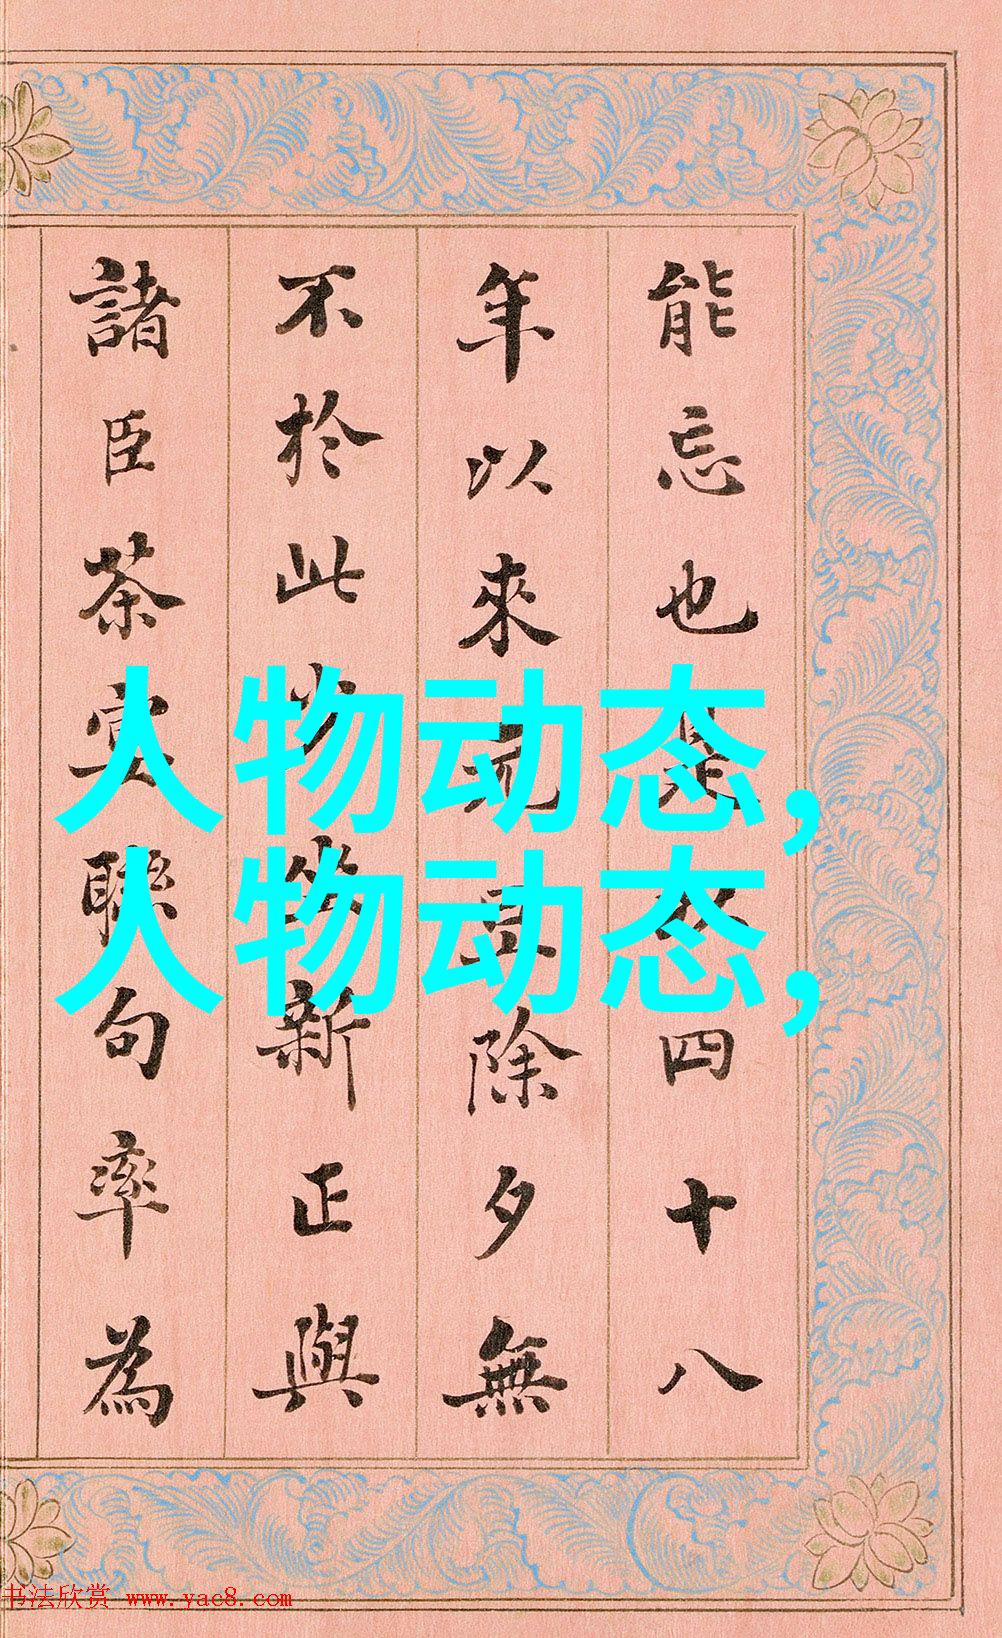 能忘也是以四十八
年以來元旦除夕無
不於此少坐新正與
諸臣茶宴聯句率為
人物动态,
人物动态,
书法欣赏 www.yac8.com